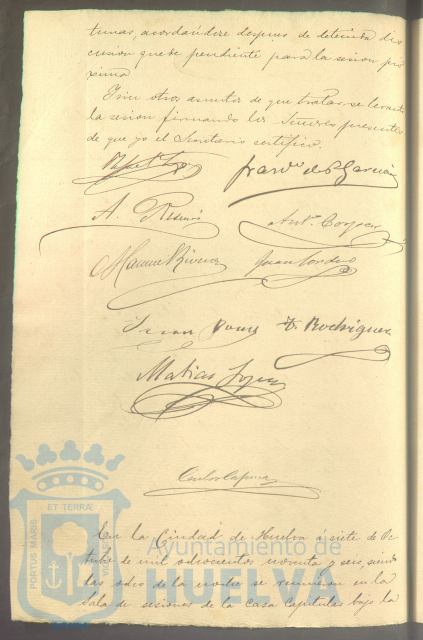 tunas, acordándose despues de detenida dis
cusion quede pendiente para la sesion pró
xima
Y sin otros asuntos de que tratar se levantó
la sesion firmando los Señores presentes
de que yo el Secretario certifico.
Franco de P García
A.
Anto
Manuel Rivera Juan Cordero
Juan F. Rodriguez
Matias Lopez
Carlos
En la Ciudad de Huelva á siete de Oc
tubre de mil ochocientos noventa y seis, siendo
las ocho de la noche se reunieron en la
Sala de sesiones de la casa Capitular bajo la
PORTUS MARIS ET TERRÆ
Ayuntamiento de
HUELVA